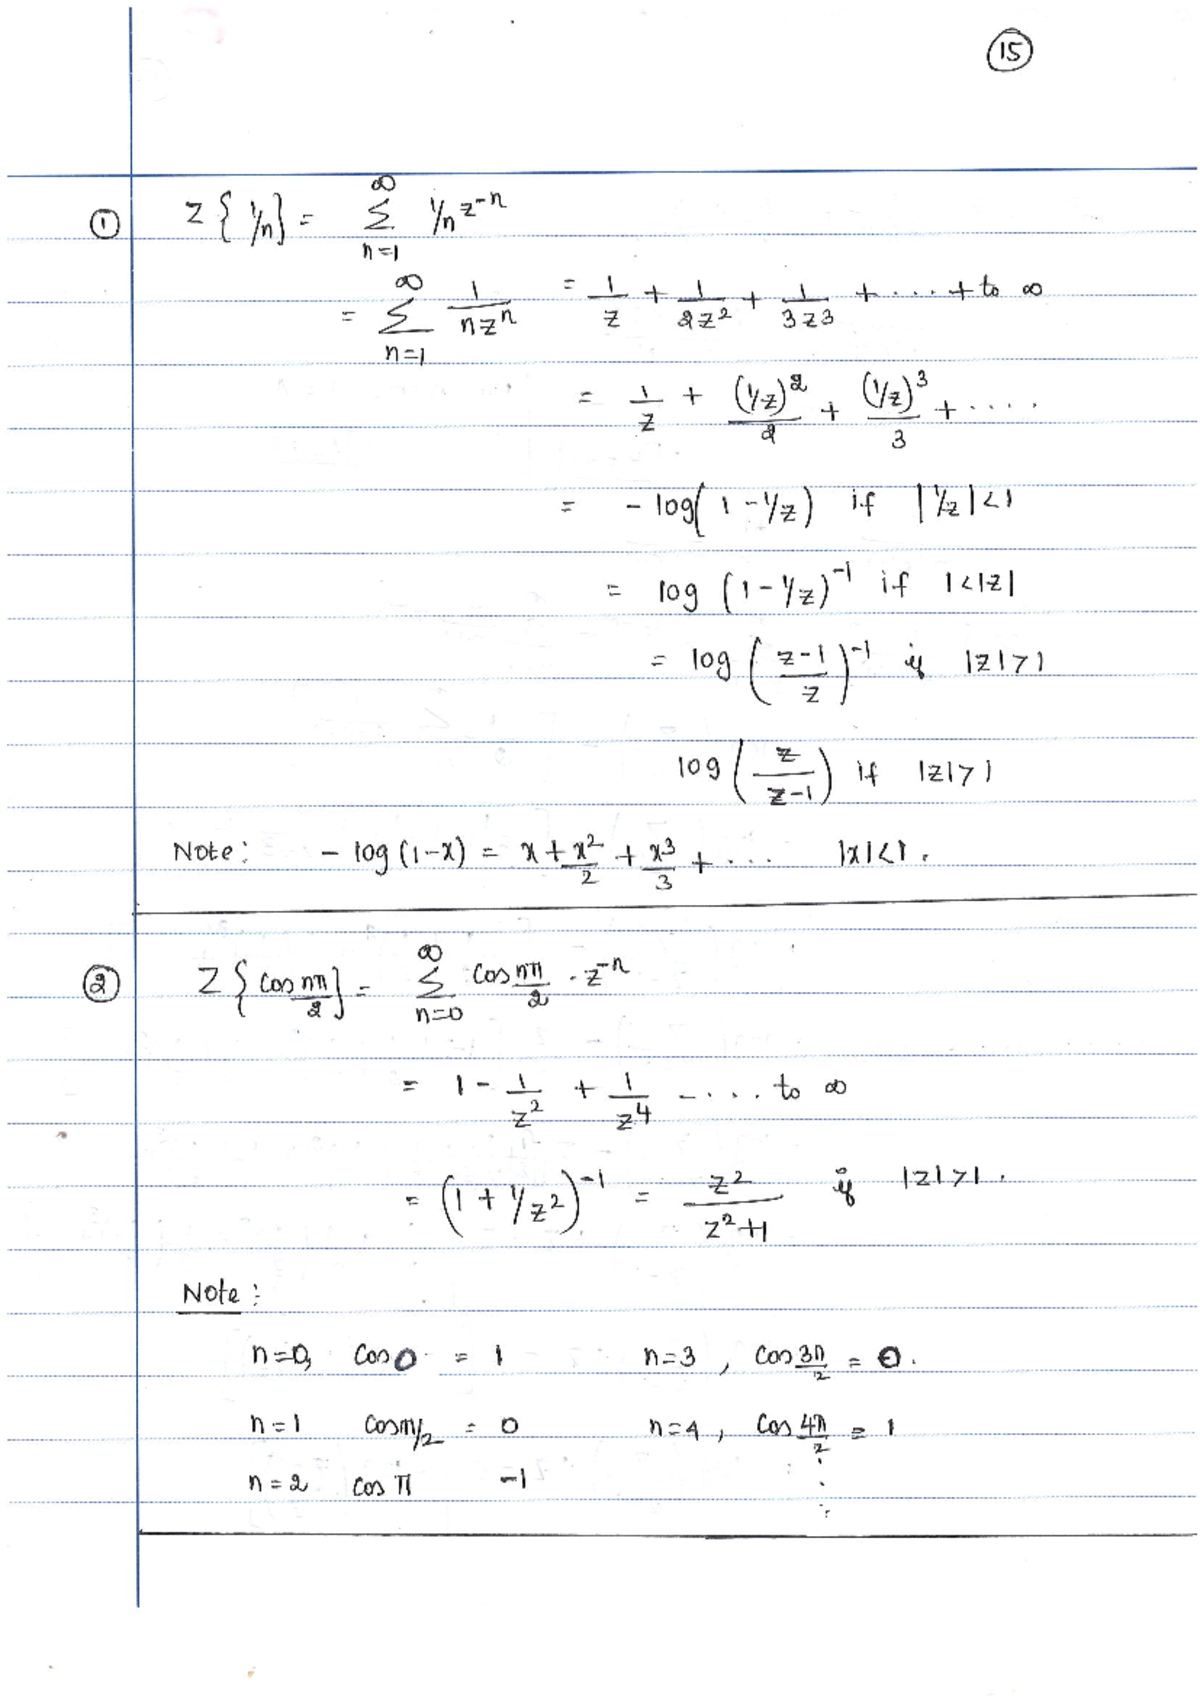 15
① Z{1/n} = ∞ Σ n=1 1/n z^-n
= ∞ Σ n=1 1/(nz^n) = 1/z + 1/(2z^2) + 1/(3z^3) + .... + to ∞
= 1/z + (1/z)^2/2 + (1/z)^3/3 + ....
= - log(1 - 1/z) if |1/z| < 1
= log (1 - 1/z)^-1 if 1 < |z|
= log ((z-1)/z)^-1 if |z| > 1
log (z/(z-1)) if |z| > 1
Note: - log (1-x) = x + x^2/2 + x^3/3 + ... |x| < 1.
② Z{cos nπ/2} = ∞ Σ n=0 cos nπ/2 . z^-n
= 1 - 1/z^2 + 1/z^4 - .... to ∞
= (1 + 1/z^2)^-1 = z^2/(z^2+1) if |z| > 1.
Note:
n=0, cos 0 = 1 n=3, cos 3π/2 = 0.
n=1 cos π/2 = 0 n=4, cos 4π/2 = 1
n=2 cos π -1